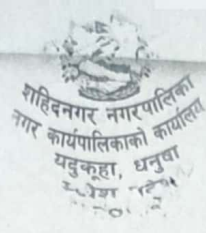 शहिदनगर नगरपालिका
नगर कार्यपालिकाको कार्यालय
यदुकूहा, धनुषा